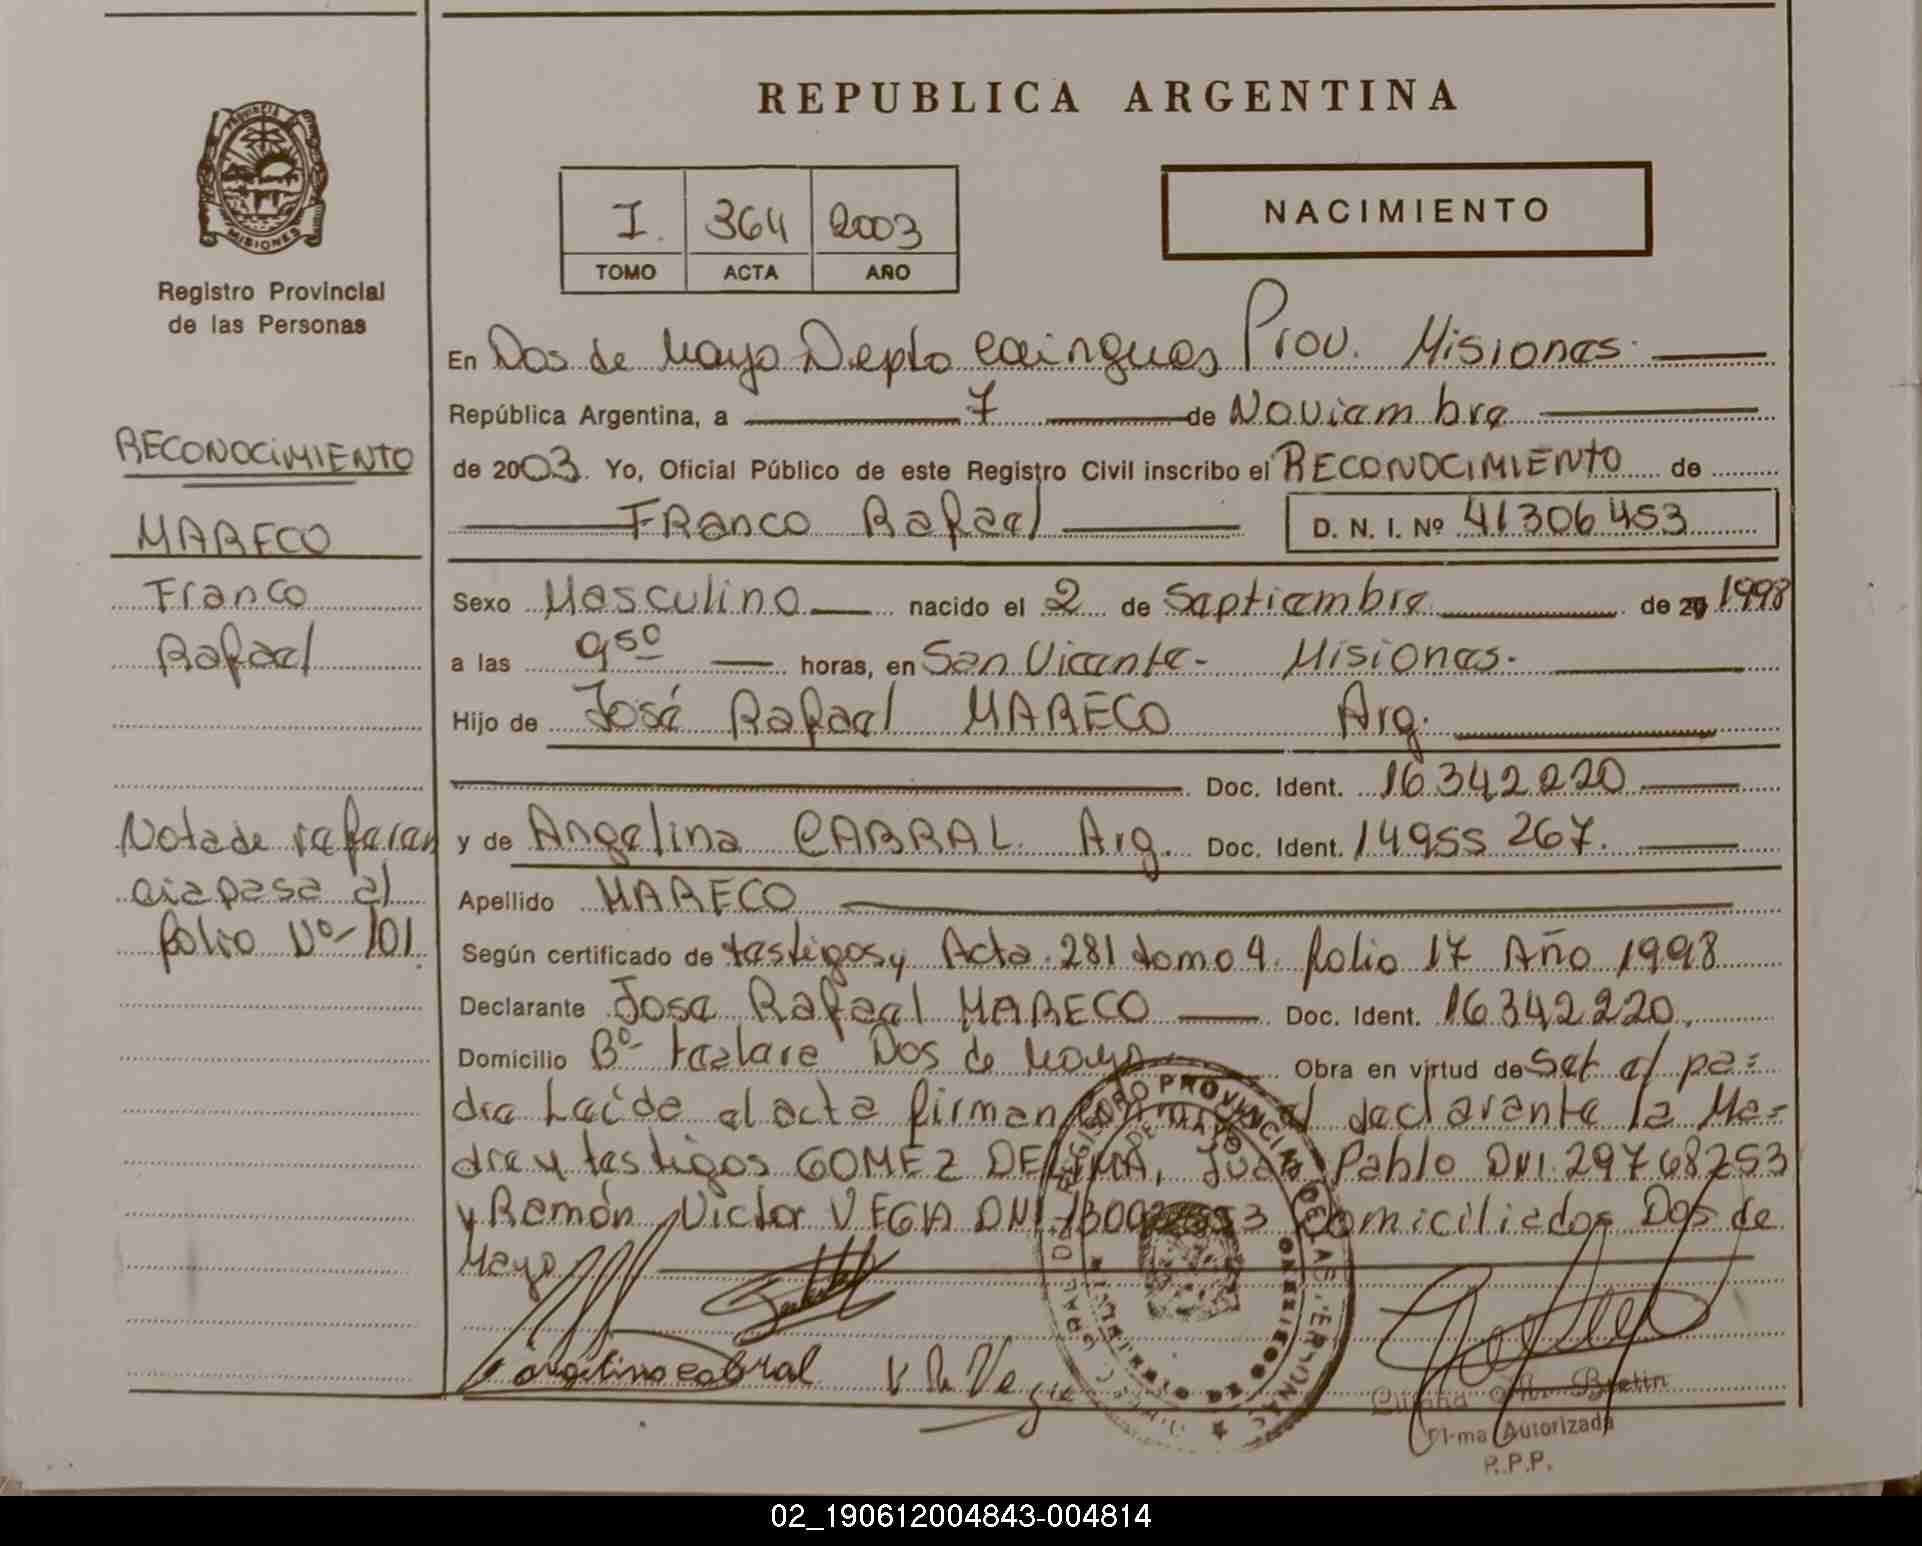 REPUBLICA ARGENTINA
PROVINCIA
MISIONES
Registro Provincial
de las Personas
I. 364 2003
TOMO ACTA AÑO
NACIMIENTO
RECONOCIMIENTO
MARECO
Franco
Rafael
Nota de referen
cia pasa al
folio Nº-101.
En Dos de Mayo Depto Cainguas Prov. Misiones.
República Argentina, a 7 de Noviembre
de 2003. Yo, Oficial Público de este Registro Civil inscribo el RECONOCIMIENTO de
Franco Rafael D. N. I. Nº 41306453
Sexo Masculino nacido el 2 de Septiembre de 1998
a las 9⁵⁰ horas, en San Vicente- Misiones.
Hijo de José Rafael MARECO Arg.
Doc. Ident. 16342220
y de Angelina CABRAL. Arg. Doc. Ident. 14955267.
Apellido MARECO
Según certificado de testigos y Acta 281 tomo 4. folio 17 Año 1998
Declarante Jose Rafael MARECO Doc. Ident. 16342220.
Domicilio Bº Dos de Mayo Obra en virtud de Ser el pa=
dre Leída el acta firman al declarante la Ma=
dre y testigos GOMEZ Pablo DNI. 29768253
y Ramón Victor VEGA DNI domiciliados Dos de
Mayo
angelina cabral V R Vega
REGISTRO PROVINCIAL DE LAS PERSONAS
DOS DE MAYO
Firma Autorizada
R.P.P.
02_190612004843-004814